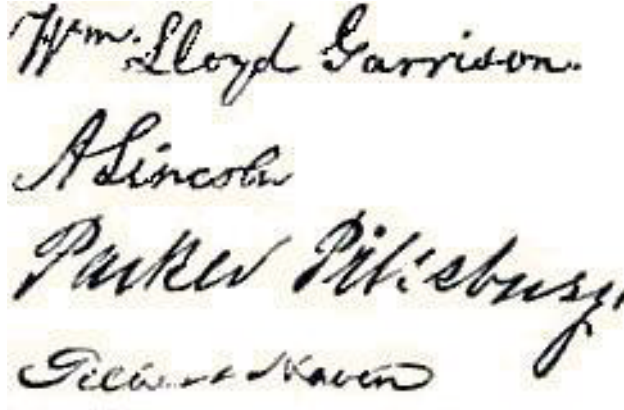 Wm. Lloyd Garrison.
A Lincoln
Parker Pillsbury
Haven